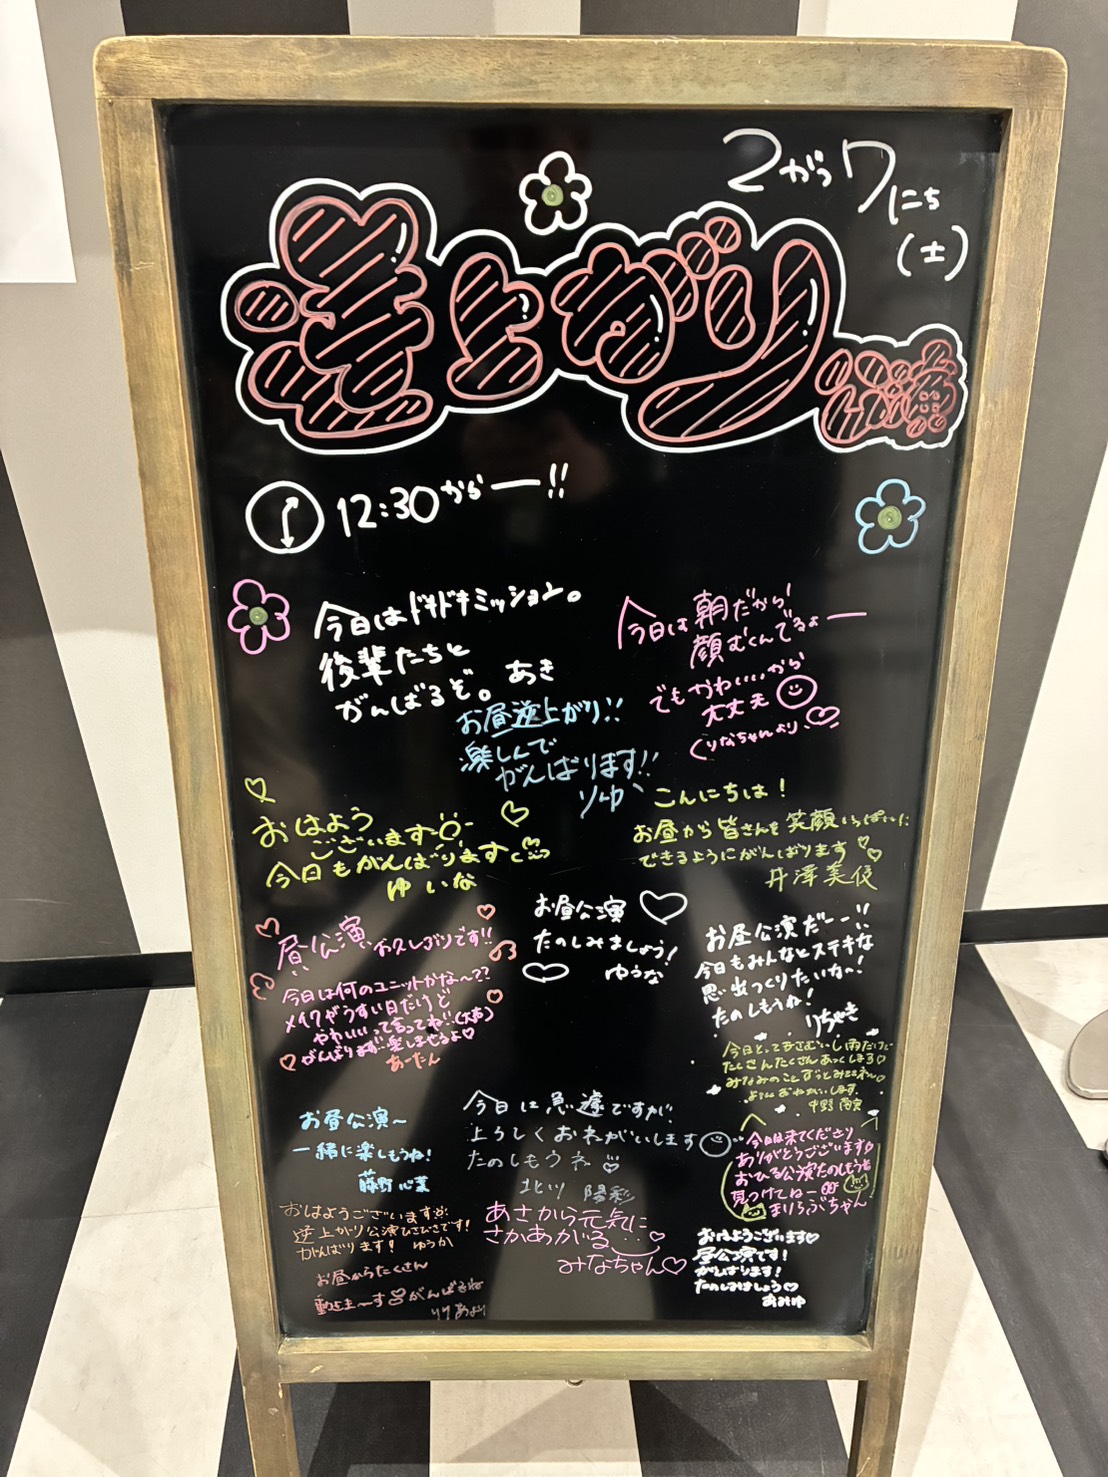 2がつ7にち
(土)
逆上がり
公演
12:30からー!!
今日はドキドキミッション。
後輩たちと
がんばるぞ。あき
今日は朝だから
顔むくんでるよー
でもかわいいから
大丈夫
くりなちゃんより
お昼逆上がり!!
楽しんで
がんばります!!
りゆ
おはよう
ございます
今日もがんばります
ゆいな
こんにちは!
お昼から皆さんを笑顔いっぱいに
できるようにがんばります
井澤美優
お昼公演
たのしみましょう!
ゆうな
昼公演、お久しぶりです!!
今日は何のユニットかな〜??
メイクがうすい日だけど
かわいいって言ってね!!(大声)
がんばります 楽しませるよ
あーたん
お昼公演だーー!!
今日もみんなとステキな
思い出つくりたいなー!
たのしもうね!
りちゃき
今日とってもさむいし雨だけど
たくさんたくさんあっくしまる
みなみのことずっとみててネ〜
よろしくおねがいします
お昼公演〜
一緒に楽しもうね!
藤野心葉
今日は急遽ですが
よろしくおネがいします
たのしもうネ
北川 陽彩
今日は来てくださり
ありがとうございます
おひる公演たのしもうね
見つけてねー
まりろぶちゃん
おはようございます
逆上がり公演ひさびさです!
がんばります! ゆうか
あさから元気に
さかあがる
みなちゃん
おはようございます
昼公演です!
がんばります!
たのしみましょう
あみゆ
お昼からたくさん
動きま〜す がんばるね